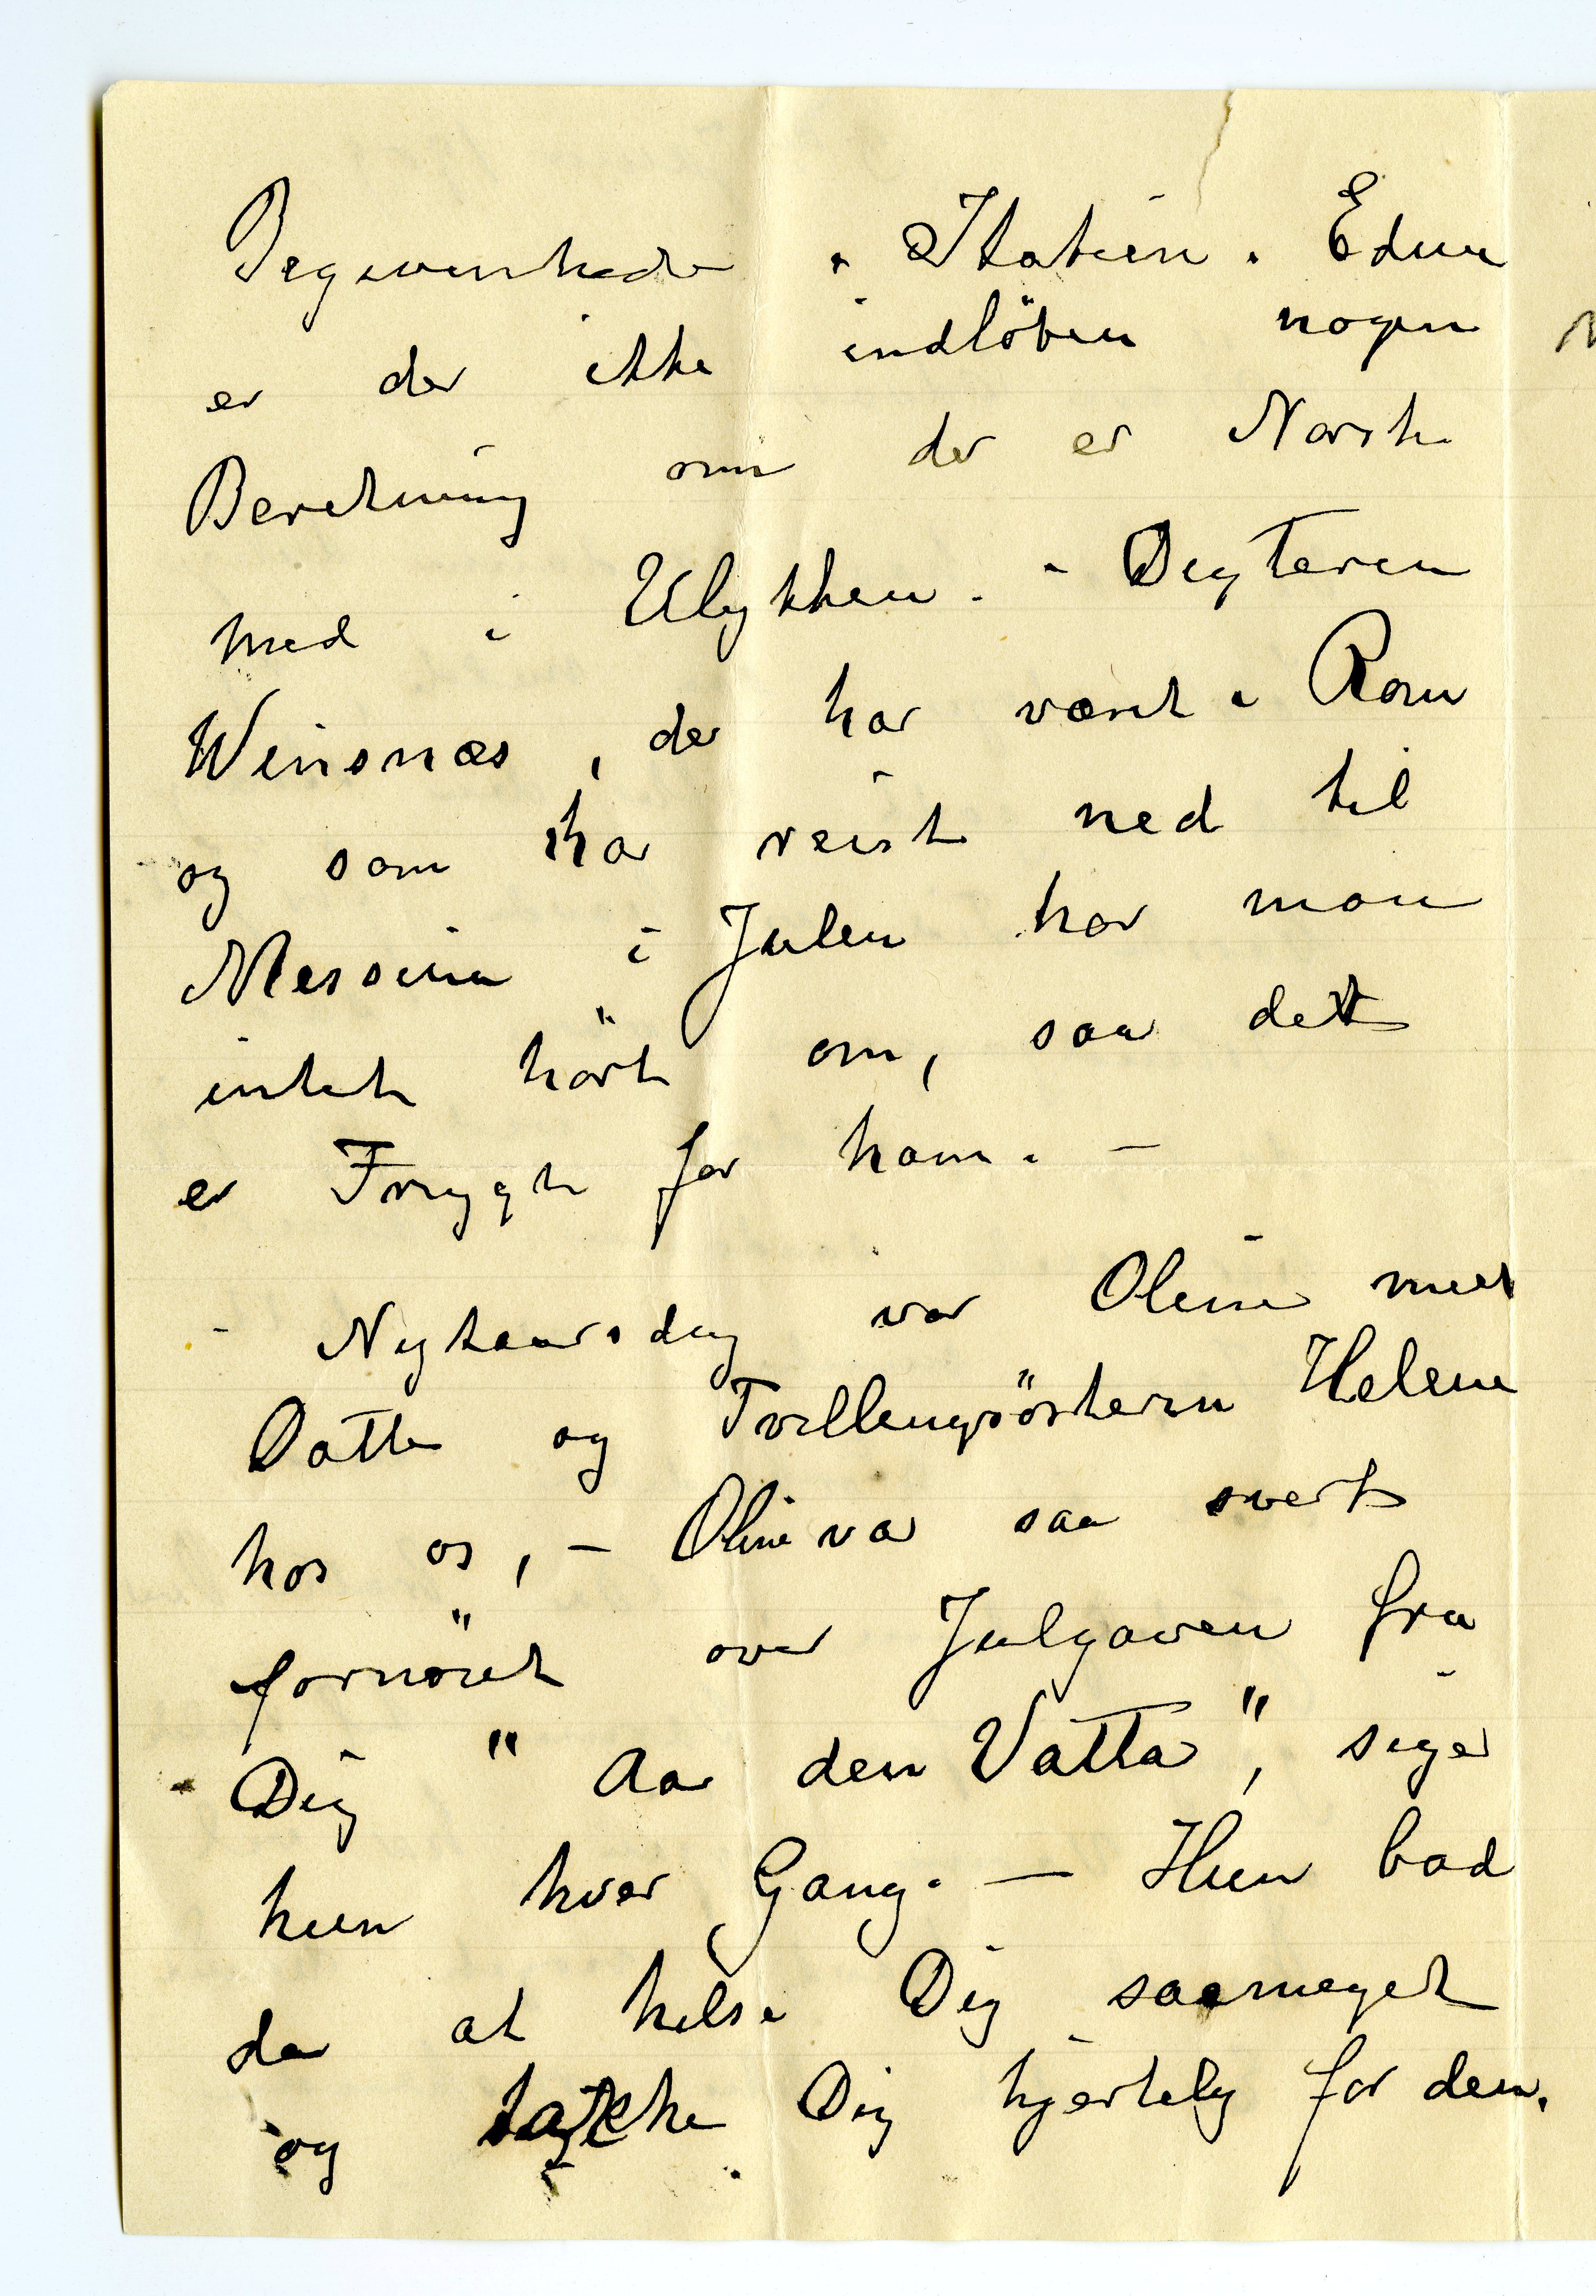 Begivenheder i Italien. Endnu
er der ikke indlöben nogen
Beretning om der er Norske
med i Ulykken. - Digteren
Winsnæs, der har været i Rom
og som har reist ned til
Messina i Julen har man
intet hört om, saa det
er Frygt for ham. -
- Nytaarsdag var Oline med
Datter og Tvillingsösteren Helene
hos os, - Oline var saa svert
fornöiet over Julgaven fra
Dig " Aa den Vatta", siger
hun hver Gang. - Hun bad
da at hilse Dig saameget
og takke Dig hjertelig for den.